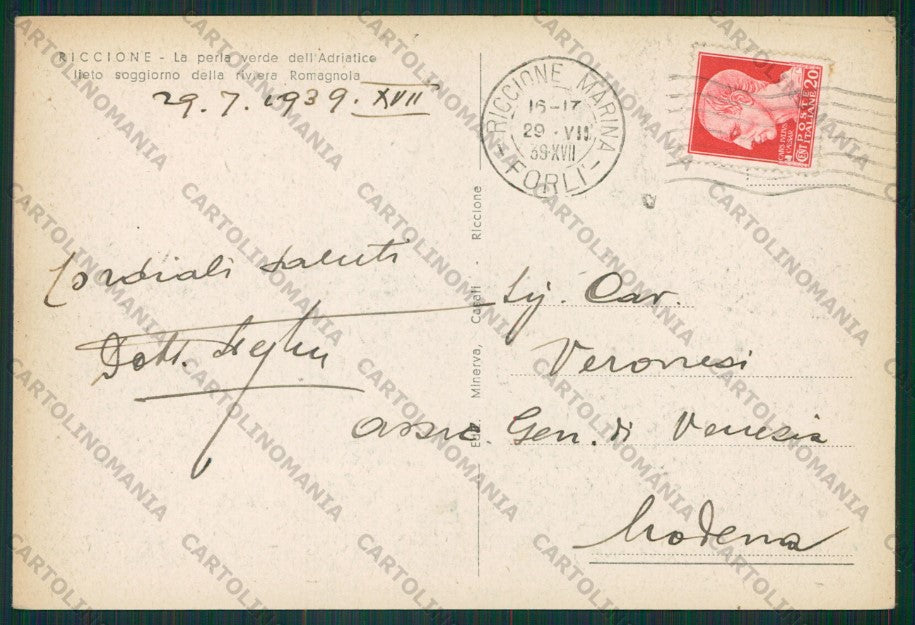 RICCIONE - La perla verde dell'Adriatico
lieto soggiorno della riviera Romagnola
29.7.1939.XVII
RICCIONE MARINA
16-17
29 · VII
39·XVII
-FORLI'-
20
POSTE
ITALIANE
CENT
Cordiali saluti
Dott.
Edit. Minerva, Casati Riccione
Sig. Cav.
Veronesi
Assic. Gen. di Venezia
Modena
CARTOLINOMANIA